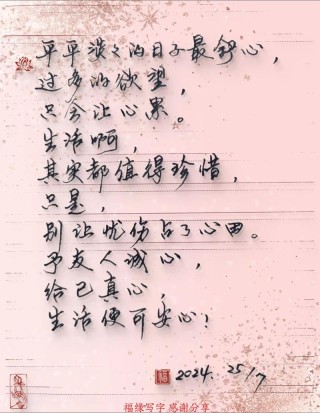 平平淡淡的日子最舒心，
过多的欲望，
只会让心累。
生活啊，
其实都值得珍惜，
只是，
别让忧伤占了心田。
予友人诚心，
给己真心，
生活便可安心！
福 2024.25/7
福缘写字 感谢分享